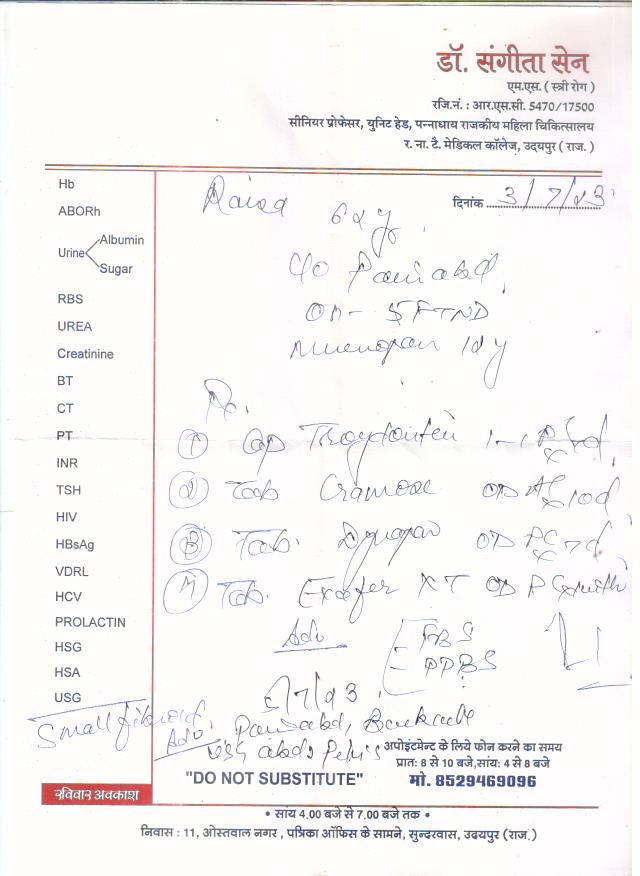 डॉ. संगीता सेन
एम.एस. ( स्त्री रोग )
रजि.नं. : आर.एस.सी. 5470/17500
सीनियर प्रोफेसर, युनिट हेड, पन्नाधाय राजकीय महिला चिकित्सालय
र. ना. टै. मेडिकल कॉलेज, उदयपुर ( राज. )
दिनांक 3/7/23
Raisa 62y
C/O Pain abd.
OH - 5FTND
12y
Hb
ABORh
Urine Albumin
Sugar
RBS
UREA
Creatinine
BT
CT
PT
INR
TSH
HIV
HBsAg
VDRL
HCV
PROLACTIN
HSG
HSA
USG
Rx.
① Cap 1-1 PC
② Tab OD AC x 10d
③ Tab. OD PC x 7d
④ Tab. XT OD PC
Adv
- FBS
- PPBS
5/7/23
Small fibroid.
Adv Pain abd,
USG abdo Pelvis
अपोइंटमेन्ट के लिये फोन करने का समय
प्रात: 8 से 10 बजे,सांय: 4 से 8 बजे
"DO NOT SUBSTITUTE"
मो. 8529469096
रविवार अवकाश
• सांय 4.00 बजे से 7.00 बजे तक •
निवास : 11, ओस्तवाल नगर , पत्रिका ऑफिस के सामने, सुन्दरवास, उदयपुर (राज.)